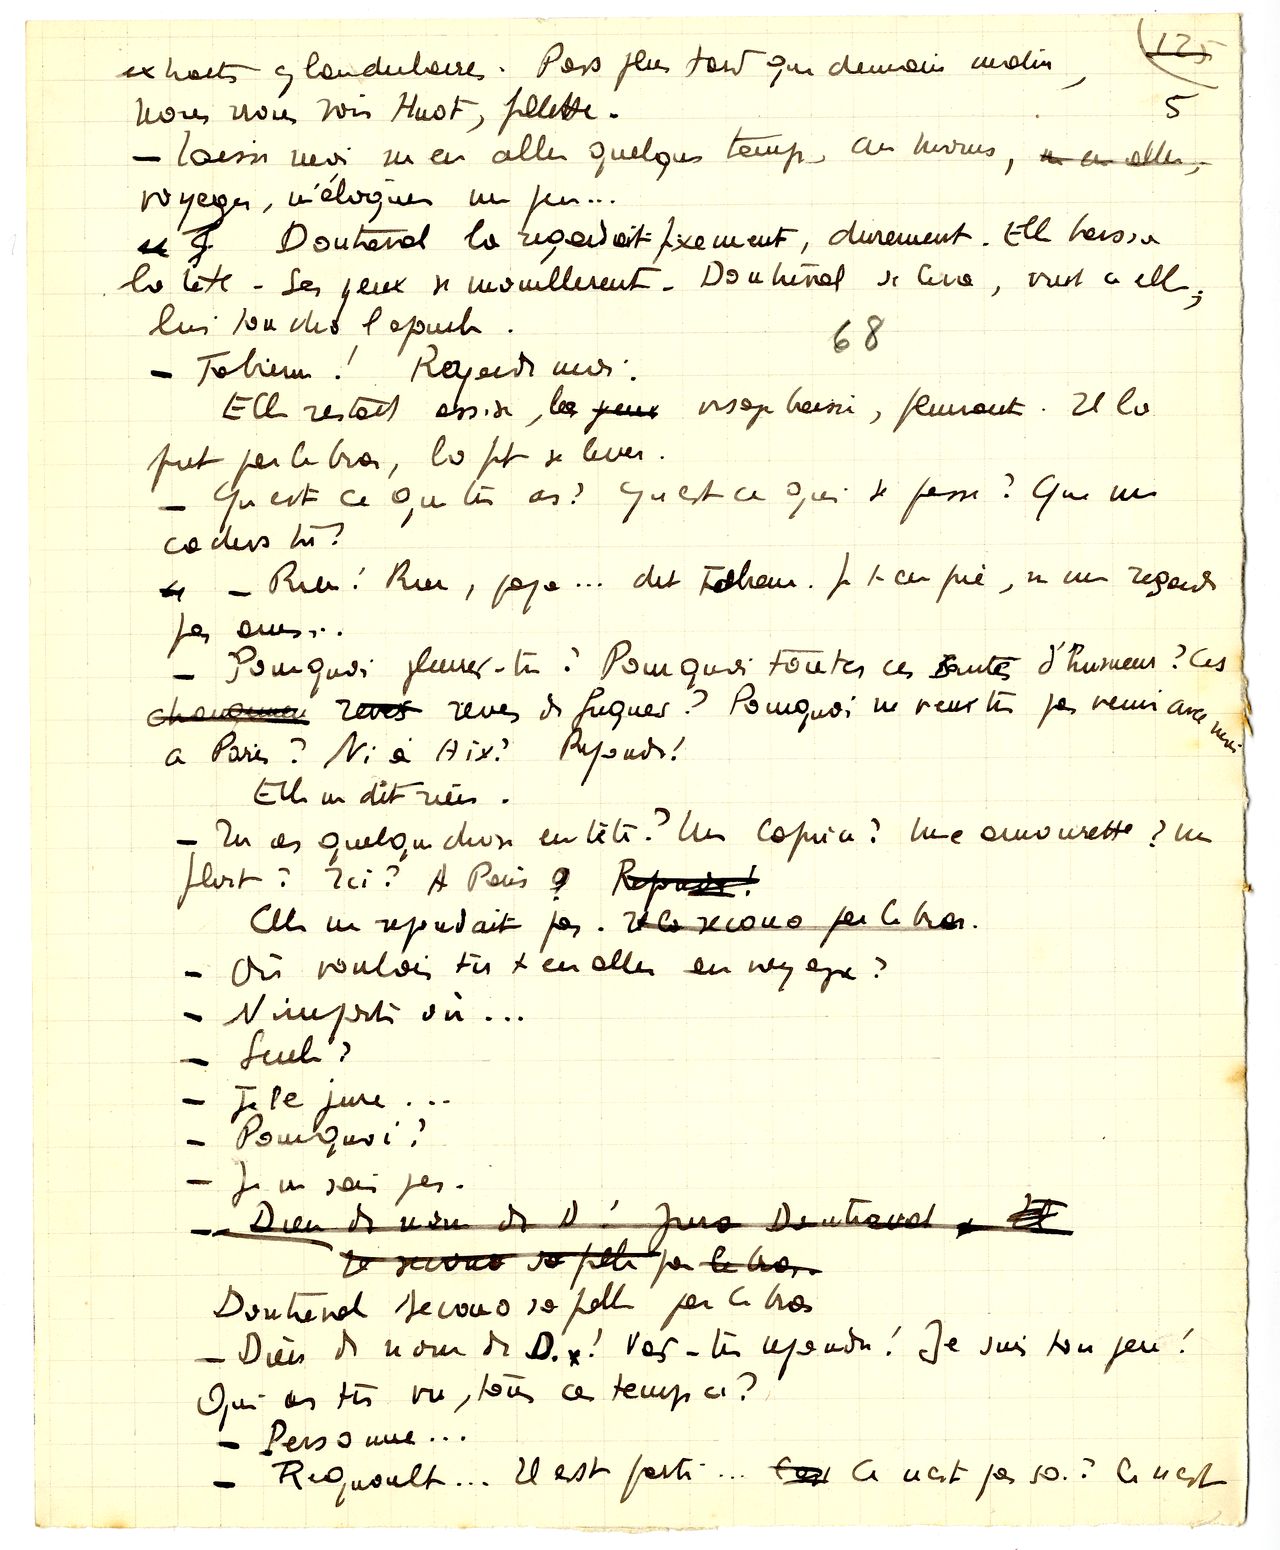 125
5
extraits glandulaires. Pas plus tard que demain matin,
nous irons voir Huot, fillette.
– Laisse moi m'en aller quelques temps, au moins, m'en aller,
voyager, m'éloigner un peu...
Doutreval la regardait fixement, durement. Elle baissa
la tête. Ses yeux se mouillèrent. Doutreval se leva, vint à elle,
lui toucha l'epaule.
68
– Fabienne ! Regarde moi.
Elle restait assise, les yeux visage baissé, pleurant. Il la
prit par le bras, la fit se lever.
– Qu'est ce que tu as? Qu'est ce qui se passe? Que me
caches tu?
– Rien! Rien, papa... dit Fabienne. Je t'en prie, ne me regarde
pas ainsi...
– Pourquoi pleures-tu? Pourquoi toutes ces sautes d'humeur? Ces
changemen reves reves de fugues? Pourquoi ne veux tu pas venir avec moi
a Paris? Ni à Aix? Reponds!
Elle ne dit rien.
– Tu as quelque chose en tête? Un copain? Une amourette? Un
flirt? Ici? A Paris? Reponds!
Elle ne repondait pas. Il la secoua par le bras.
– Où voulais tu t'en aller en voyage?
– N'importe où...
– Seule?
– Je le jure...
– Pourquoi?
– Je ne sais pas.
– Dieu de nom de D! jura Doutreval, Il
secoua sa fille par le bras.
Doutreval secoua sa fille par le bras
– Dieu de nom de D.x! Vas-tu repondre! Je suis ton pere!
Qui as tu vu, tous ces temps ci?
– Personne...
– Regnoult... Il est parti... C'est Ce n'est pas ça? Ce n'est